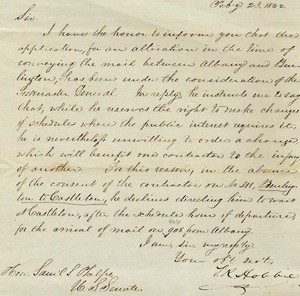 Feby 23. 1842
Sir
I have the honor to inform you that the
application, for an alteration in the time of
conveying the mail between Albany and Bur-
lington, has been under the consideration of the
Postmaster General. In reply, he instructs me to say
that, while he reserves the right to make changes
of schedules where the public interest requires it,
he is nevertheless unwilling to order a change
which will benefit one contractor to the injury
of another. For this reason, in the absence
of the consent of the contractors on No Burling-
ton to Castleton, he declines directing him to wait
at Castleton, after the schedule hour of departure
for the arrival of mail on from Albany.
I am sir, very resply
Your obt servt.
S R Hobbie
Hon. Saml S. Phelps
U.S. Senate.